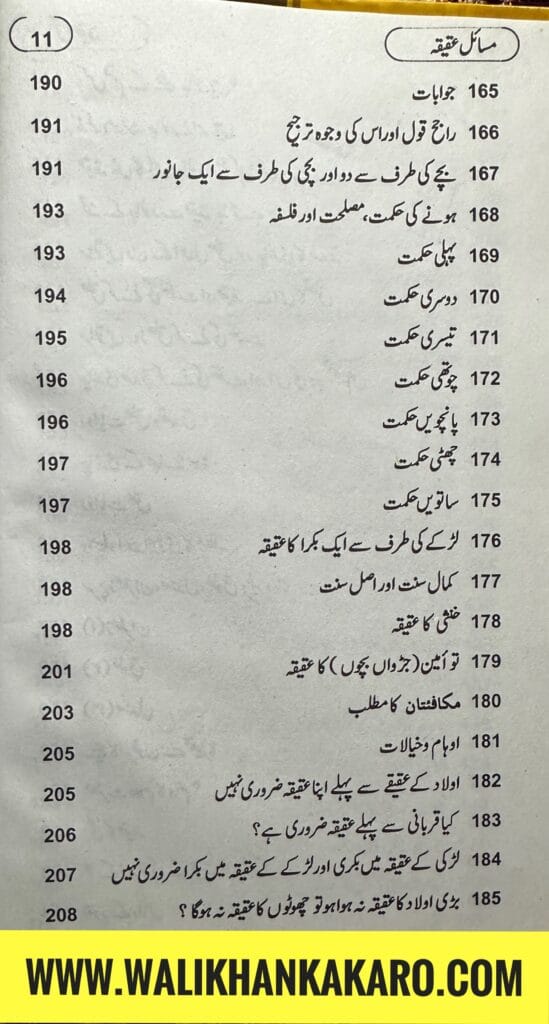 مسائل عقیقہ 11
165 جوابات 190
166 راجح قول اور اس کی وجوہ ترجیح 191
167 بچے کی طرف سے دو اور بچی کی طرف سے ایک جانور 191
168 ہونے کی حکمت، مصلحت اور فلسفہ 193
169 پہلی حکمت 193
170 دوسری حکمت 194
171 تیسری حکمت 195
172 چوتھی حکمت 196
173 پانچویں حکمت 196
174 چھٹی حکمت 197
175 ساتویں حکمت 197
176 لڑکے کی طرف سے ایک بکرا کا عقیقہ 198
177 کمال سنت اور اصل سنت 198
178 خنثی کا عقیقہ 198
179 تو أمین (جڑواں بچوں) کا عقیقہ 201
180 مکافئتان کا مطلب 203
181 اوہام و خیالات 205
182 اولاد کے عقیقے سے پہلے اپنا عقیقہ ضروری نہیں 205
183 کیا قربانی سے پہلے عقیقہ ضروری ہے؟ 206
184 لڑکی کے عقیقہ میں بکری اور لڑکے کے عقیقہ میں بکرا ضروری نہیں 207
185 بڑی اولاد کا عقیقہ نہ ہوا ہو تو چھوٹوں کا عقیقہ نہ ہوگا؟ 208
WWW.WALIKHANKAKARO.COM